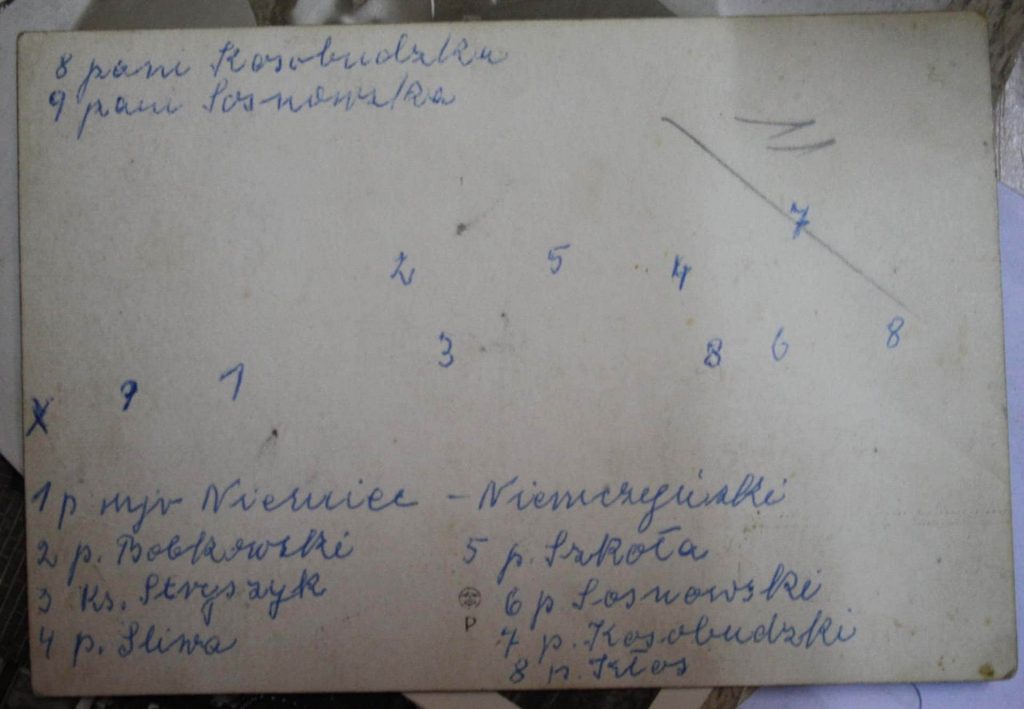 8 pani Kosobudzka
9 pani Sosnowska
11
7
2 5 4
3 8 6 8
X 9 1
1 p inż Niemiec - Niemczyński
2 p. Bobkowski 5 p. Szkoła
3 Ks. Stryszyk 6 p Sosnowski
4 p. Sliwa 7 p. Kosobudzki
P 8 p. Kłos